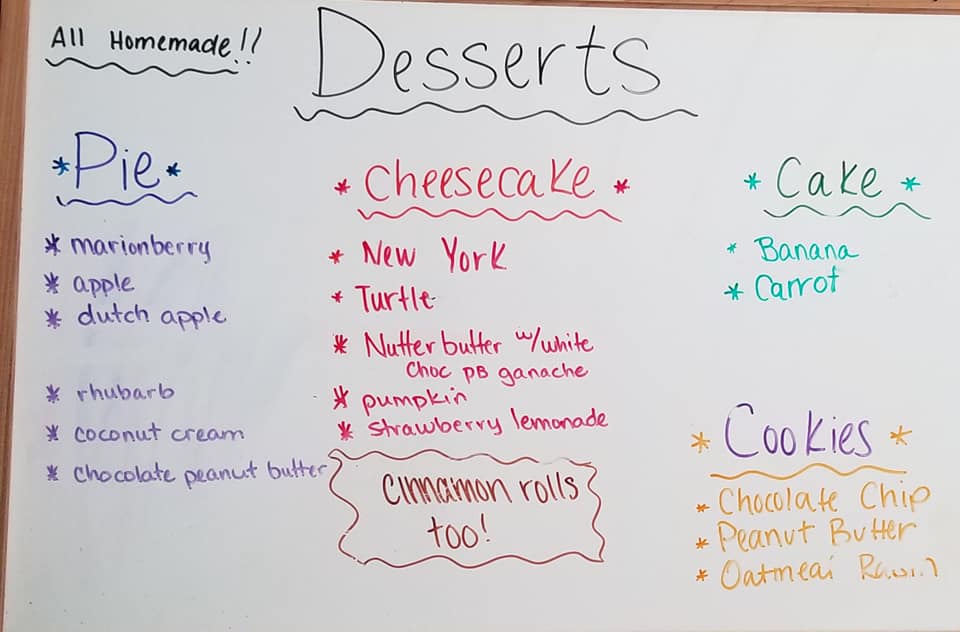 All Homemade!!
Desserts
*Pie*
* marionberry
* apple
* dutch apple
* rhubarb
* coconut cream
* chocolate peanut butter
* Cheesecake *
* New York
* Turtle
* Nutter butter w/white
choc PB ganache
* pumpkin
* strawberry lemonade
Cinnamon rolls
too!
* Cake *
* Banana
* Carrot
* Cookies *
* Chocolate Chip
* Peanut Butter
* Oatmeal Raisin